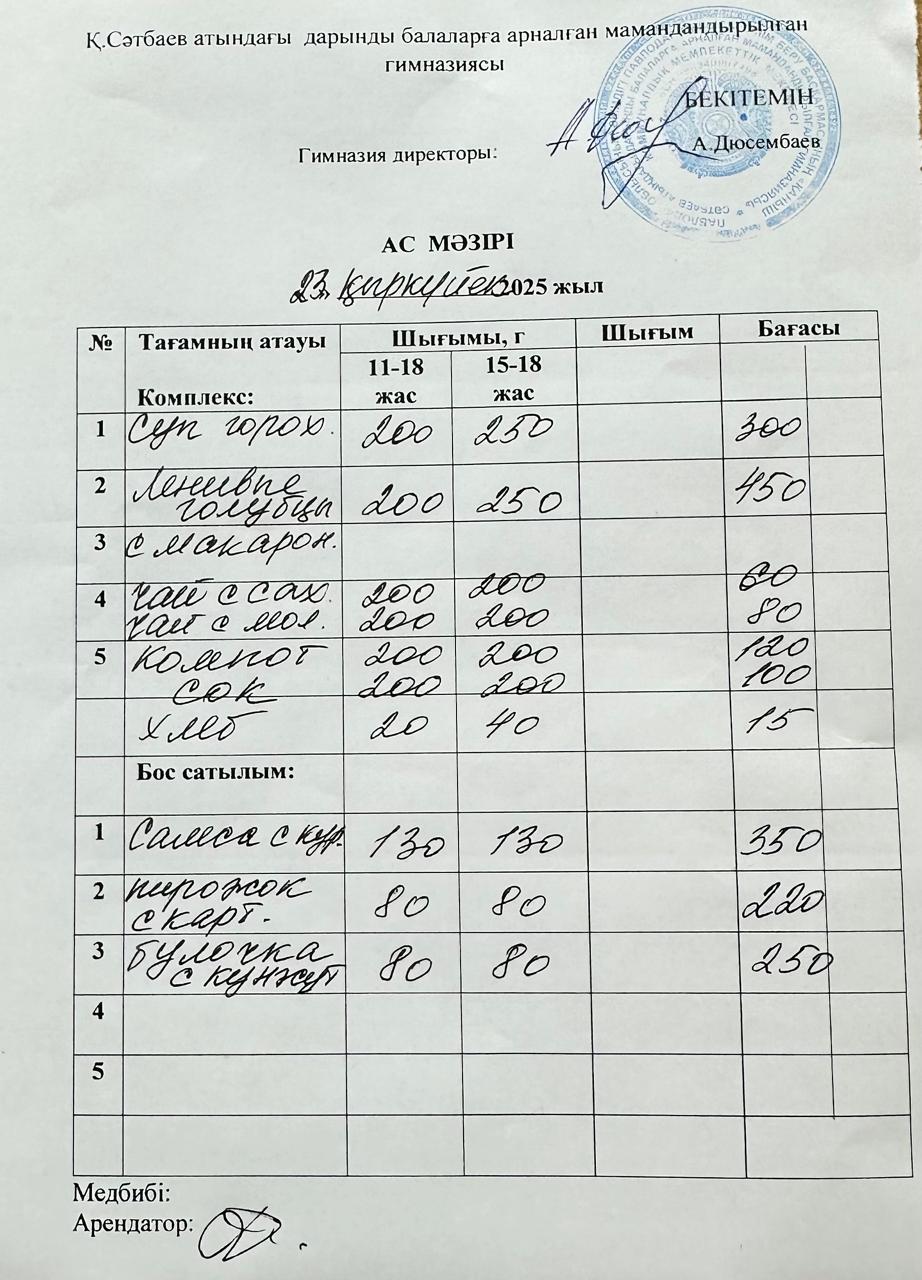 Қ.Сәтбаев атындағы дарынды балаларға арналған мамандандырылған
гимназиясы
БЕКІТЕМІН
Гимназия директоры: А.Дюсембаев
АС МӘЗІРІ
23 қыркүйек 2025 жыл
№ Тағамның атауы Шығымы, г Шығым Бағасы
Комплекс: 11-18 жас 15-18 жас
1 Суп горох. 200 250 300
2 Ленивые
голубцы 200 250 450
3 с макарон.
4 чай с сах. 200 200 60
чай с мол. 200 200 80
5 компот 200 200 120
сок 200 200 100
хлеб 20 40 15
Бос сатылым:
1 Самса с кур. 130 130 350
2 пирожок
с карт. 80 80 220
3 булочка
с кунжут 80 80 250
4
5
Медбибі:
Арендатор: